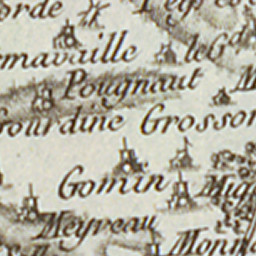 orde
rmavaille le Gd
Pougnaut
Gourdine Grosson
Gomin Mig
Meyreau
Monm